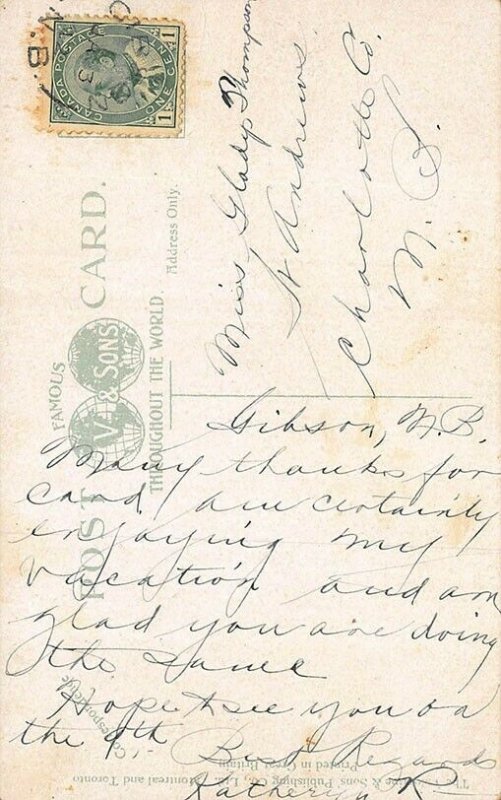 CANADA POSTAGE
ONE CENT
1 1
N.B.
FAMOUS
POST CARD.
V. & SONS
THROUGHOUT THE WORLD.
Address Only.
Miss Gladys Thompson
St Andrews
Charlotte Co.
N. B.
Gibson, N.B.
Many thanks for
card am certainly
enjoying my
vacation and am
glad you are doing
the same
Hope to see you on
the 9th
Best Regards
Katheryn R
Correspondence
& Sons Publishing Co., Ltd., Montreal and Toronto
Printed in Great Britain